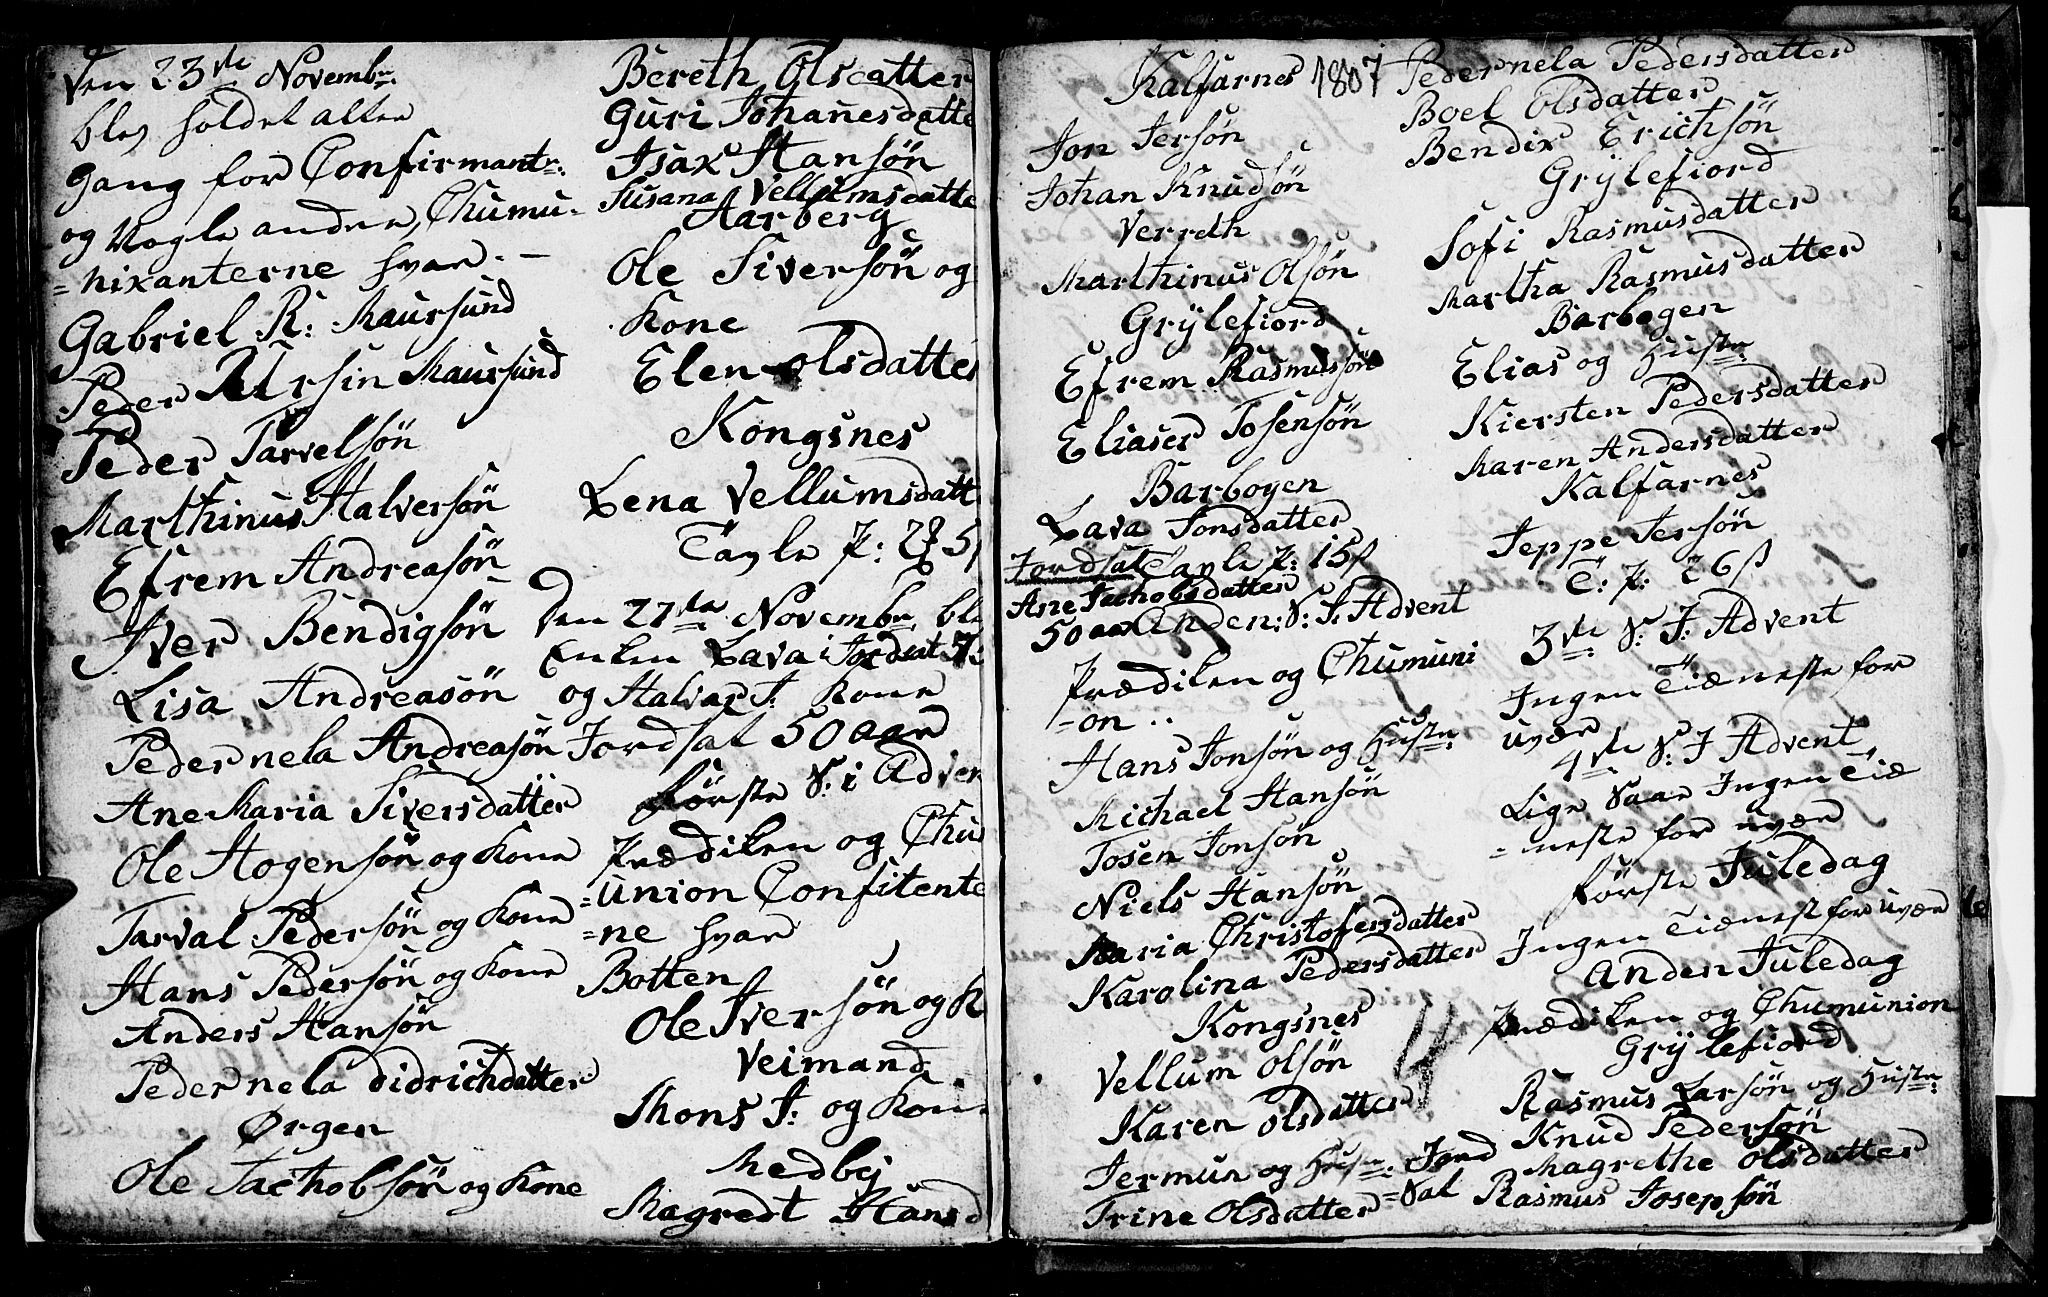 Den 23de Novembr.
blev holdet alter
gang for Confirmantr.
og Nogle andre, Chumu-
=nikanterne hvar.-
Gabriel R: Maursund
Peder Maursund
Peder Tarvelsøn
Marthinus Halversøn
Efrem Andreasøn
Iver Bendigsøn
Lisa Andreasøn
Pedernela Andreasøn
Ane Maria Siversdatter
Ole Hogensøn og Kone
Tarval Pedersøn og Kone
Hans Pedersøn og Kone
Anders Hansøn
Pedernela Didrichdatter
Ørgen
Ole Jachobsøn og Kone
Bereth Olsdatter
Guri Johanesdatte
Isax Hansøn
Susana Vellumsdatte
Aarberg
Ole Siversøn og
Kone
Elen Olsdatter
Kongsnes
Lena Vellumsdatt
Tavle P:
Den 27de Novembr. ble
Enken Lava Jordsat
og Halvar J. Kone
Jordsat 50 aar
Første S: i Adven
Prædiken og Chu
=union Confitente
=ne hvar
Botten
Ole Iversøn og K
Veimand
Mons J: og Kone
Medbej
Magredt Hansd
Kalfarnes 1807
Jon Jersøn
Johan Knudsøn
Verreth
Marthinus Olsøn
Grÿlefiord
Efrem Rasmussøn
Eliaser Josensøn
Barbogen
Lava Jonsdatter
Jordsat Tavle P: 15 ß
Ane Jachobsdatter
50 aar Anden: S: J: Advent
Prædiken og Chumuni
=on..
Hans Jonsøn og Hustr.
Michael Hansøn
Josen Jonsøn
Niels Hansøn
Maria Christofersdatter
Karolina Pedersdatter
Kongsnes
Vellum Olsøn
Karen Olsdatter
Jermun og Hustr. Jord
Trine Olsdatter =Sat
Pedernela Pedersdatter
Boel Olsdatter
Bendix Erichsøn
Grÿlefiord
Sofi Rasmusdatter
Martha Rasmusdatter
Barbogen
Elias og Hustr.
Kiersten Pedersdatter
Maren Andersdatter
Kalfarnes
Jeppe Jersøn
T: P: 26 ß
3de S: J: Advent
Ingen Tiæneste for
uvær
4de S: J Advent
Lige Saa Ingen Tiæ
=neste for uvær
første Juledag
Ingen Tiænest for uvær
Anden Juledag
Prædiken og Chumunion
Grÿlefiord
Rasmus Larsøn og Hustr:
Knud Pedersøn
Magrethe Olsdatter
Rasmus Josepsøn